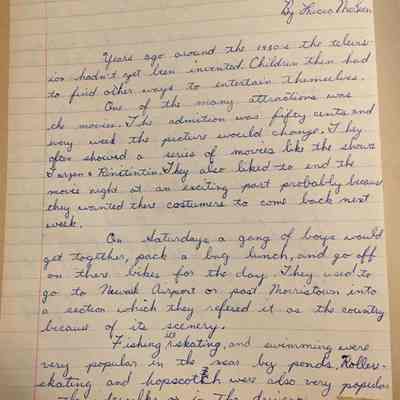 By
Years ago around the 1930's the televis-
ion hadn't yet been invented. Children then had
to find other ways to entertain themselves.
One of the many attractions was
the movies. The admition was fifty cents and
every week the picture would change. They
often showed a series of movies like the shows
Tarzan & Rintintin. They also liked to end the
movie night at an exciting part probably because
they wanted there costumers to come back next
week.
On Saturdays a gang of boys would
get together, pack a bag lunch, and go off
on there bikes for the day. They used to
go to Newark Airport or past Morristown into
a section which they refered it as the country
because of its scenery.
Fishing, ice skating, and swimming were
very popular in the near by ponds. Roller-
skating and hopscotch were also very popular
or in the